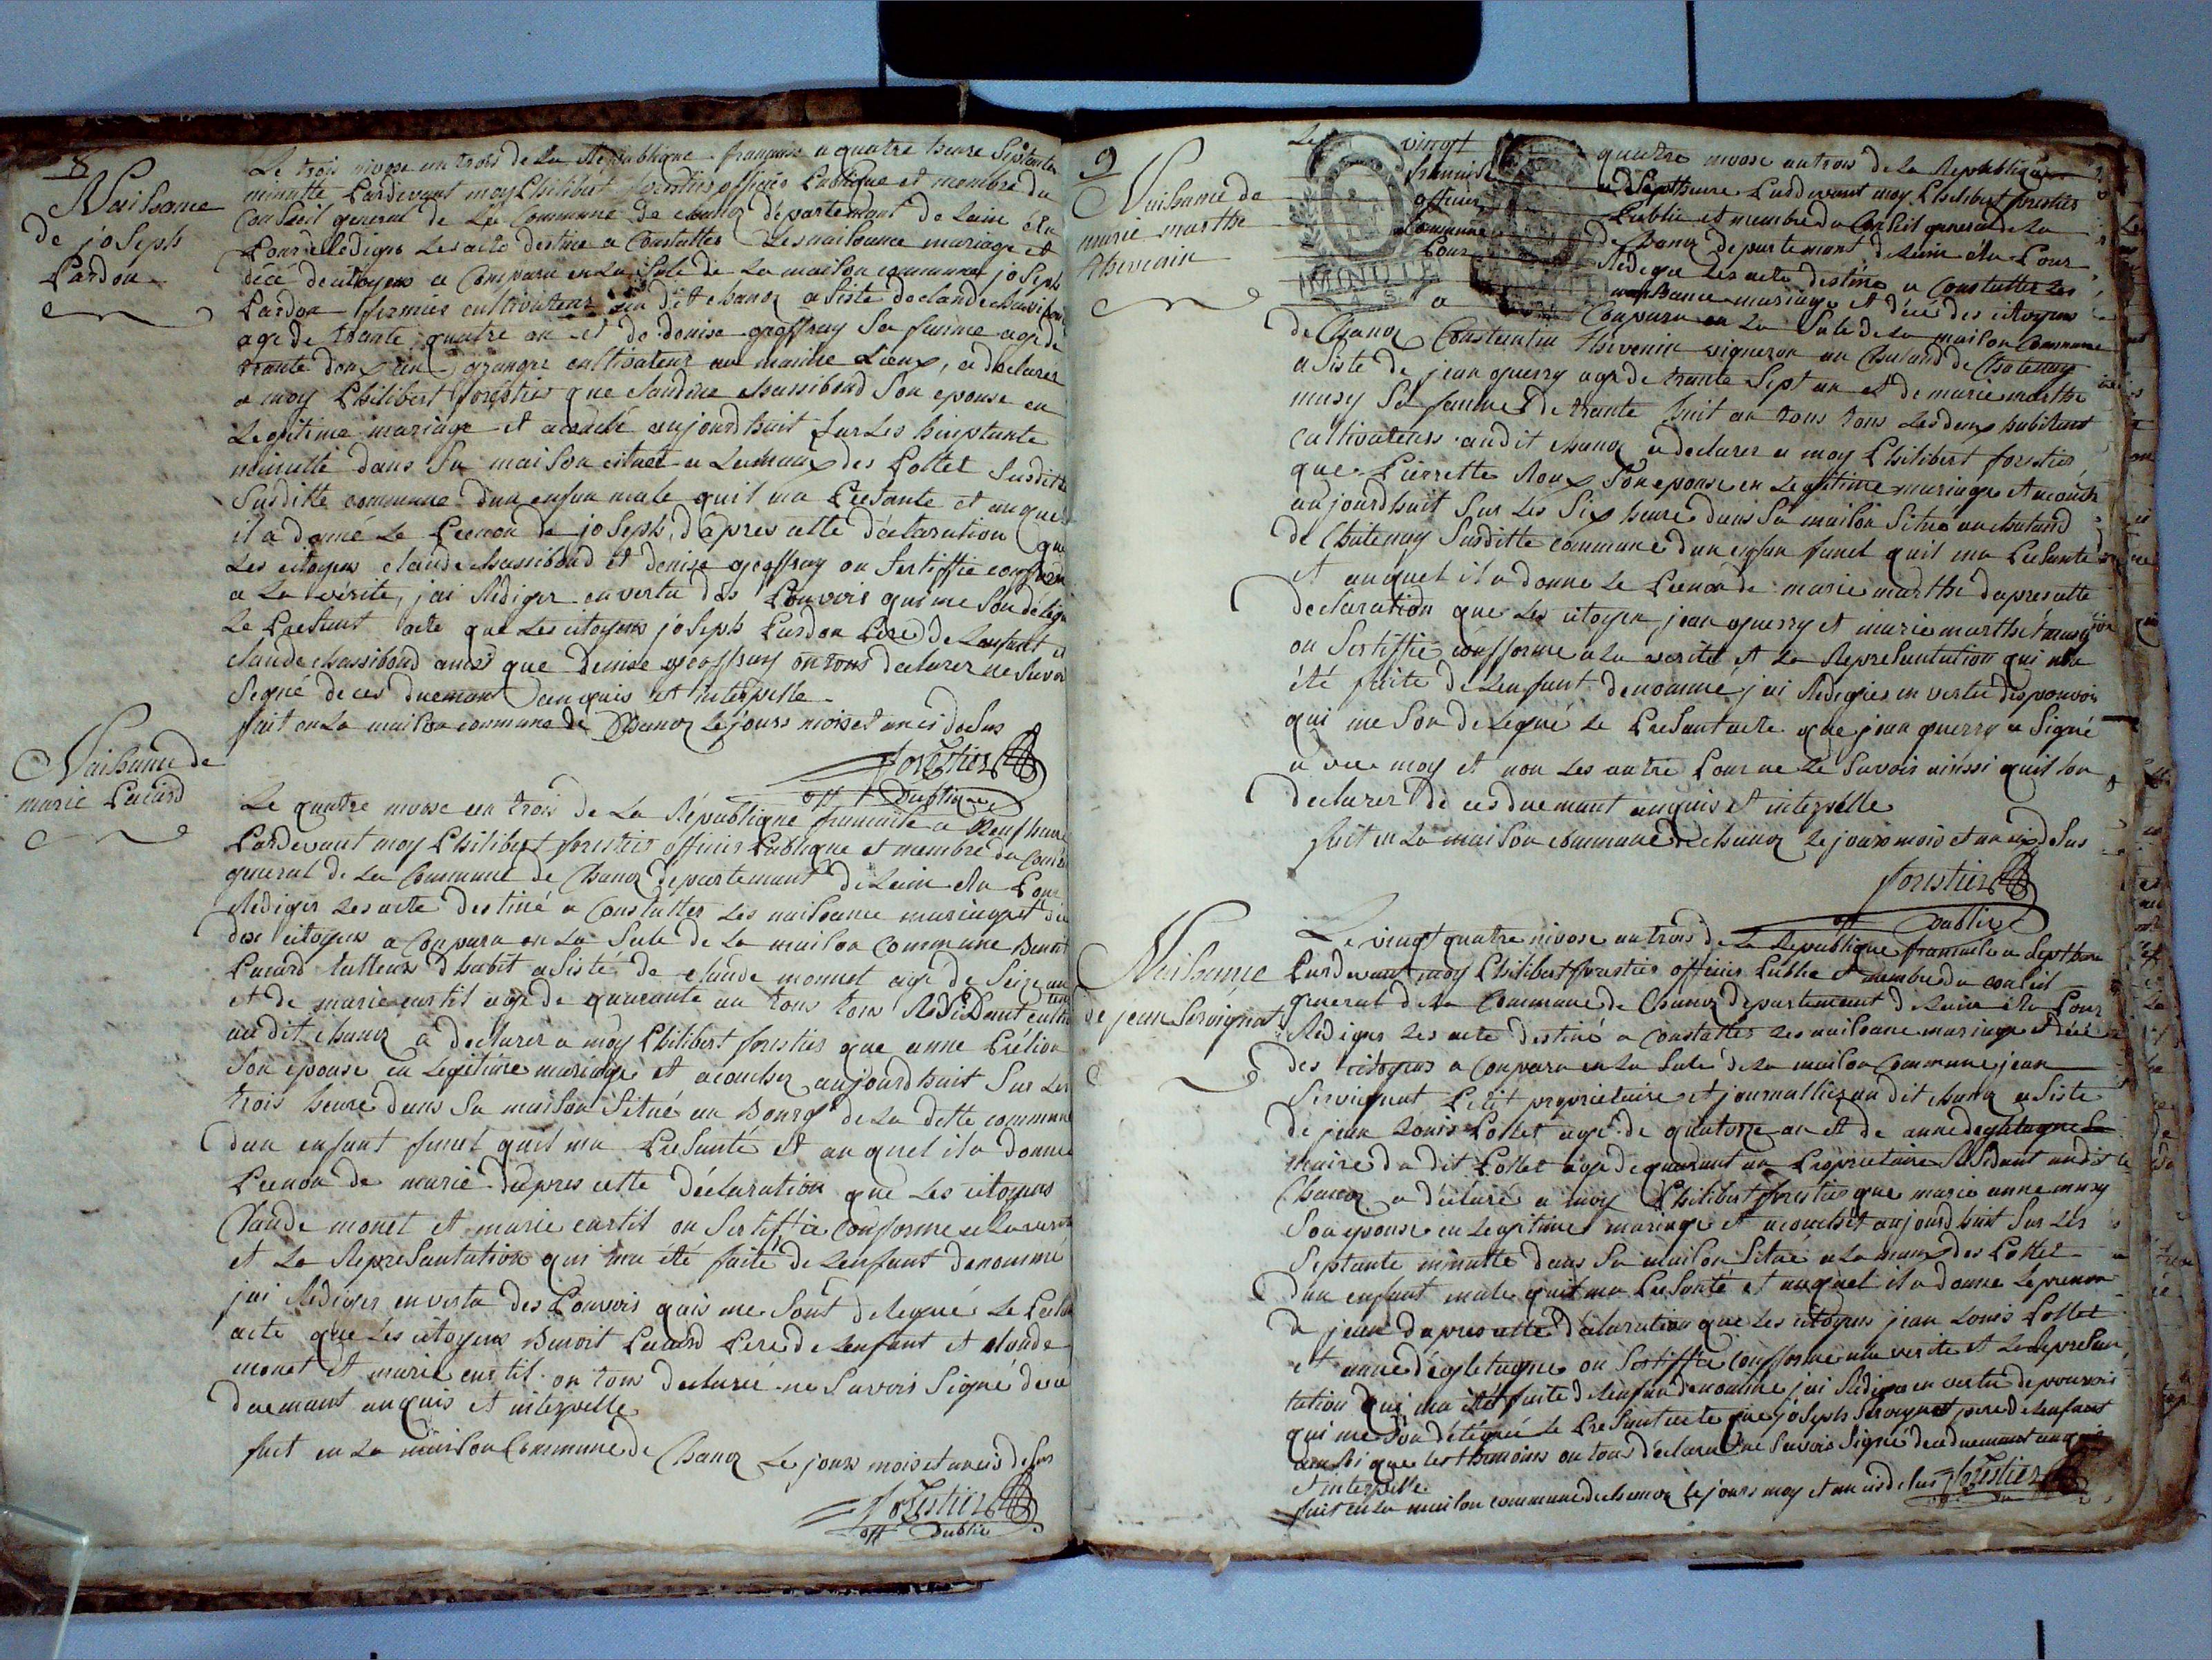 8
Naissance
de joseph
Pardon
Le trois nivose an trois de la République française a quatre heure Septante
minutte Pardevant moy Philibert forestier officier Publique et membre du
Conseil general de la Commune de chanoz département de Lain élu
Pour Rediger Les acte destiné a Constatter Les naissance mariage et
décé de citoyens a Comparu en La Sale de La maison commune joseph
Pardon fermier cultivateur au dit chanoz asisté de claude chassiboud
age de trante quatre an et de denise geoffray sa famme age de
trante deux an granger cultivateur au maime Lieux, a declarer
a moy Philibert forestier que claudine chassiboud Son epouse en
Legitime mariage et acouché aujourdhuit Sur Les huiptante
minutte dans Sa maison situet a Lamaux des Pollet Susditte
Susditte commune dun enfan male quil ma Presante et auquel
il a donné Le Prenon de joseph, dapres cette déclaration que
Les citoyens claude chassiboud et denise geoffray on Sertiffie conforme
a La vérité, jai Rediger en vertu des Pouvoirs qui me Son délégué
Le Presant acte que Les citoyens joseph Pardon Pere de Lenfant et
claude chassiboud ausi que denise geoffray on tous declarer ne Savoir
Signé de ces duemant anquis et interpelle
fait en La maison commune de Chanoz Le jours mois et an ci desus
Forestier
off Publique
Naissance de
marie Pacard
Le quatre nivose an trois de La République francaise a Neuf heure
Pardevant moy Philibert forestier officier Publique et membre du Conseil
general de La Commune de Chanoz departemant de Lain élu Pour
Rediger Les acte destiné a Constatter Les naissance mariage et décé
des citoyens a Conparu en La Sale de La maison Commune Benoit
Pacard tailleur dhabit asisté de claude monnet agé de Seize an
et de marie curtil age de quarante an tous tous Residant cultiv
audit chanoz a declarer a moy Philibert forestier que anne Prélion
Son epouse en Legitime mariage et acoucher aujourdhuit Sur Les
trois heure dans Sa maison Situé au Bourg de La ditte commune
dun enfant femel quil ma Presanté et auquel il a donné
Prenon de marie dapres cette déclaration que Les citoyens
Claude monet et marie curtil on Sertiffie conforme a La verité
et La Représantation qui ma été faite de Lenfant denommé
jai Rediger en vertu des Pouvoirs quis me Sont delegué Le Presant
acte que Les citoyens Benoit Pacard Pere de Lenfant et claude
monet et marie curtil on tous declaré ne Savoir Signé de ce
duemant anquis et interpelle
fait en La maison Commune de Chanoz Le jours mois et an ci desus
Forestier
off Public
9
Naissance de
marie marthe
thevenin
Le vingt quatre nivose an trois de La République
francaise a Sept heure Pardevant moy Philibert forestier
officier Public et membre du Conseil general de La
Commune de Chanoz departemant de Lain élu Pour
Pour Rediger Les acte destiné a Constatter Les
naissance mariage et décé des citoyens
a Conparu en La Sale de La maison Commune
MINUTE
de Chanoz Constantin thevenin vigneron au Chaland de Chatenay
asisté de jean guerry age de trante Sept an et de marie marthe
musy Sa famme de trante huit an tous tous Les deux habitant
cultivateurs audit chanoz a declarer a moy Philibert forestier
que Pierrette Roux Son epouse en Legitime mariage et acouché
aujourdhuit Sur Les Six heure dans Sa maison Situé au chaland
de Chatenay Susditte commune dun enfan femel quil ma Presante
et auquel il a donne Le Prenon de marie marthe dapres cette
declaration que Les citoyen jean guerry et marie marthe musy
on Sertiffie confforme a La verité et La Représantation qui ma
été faite de Lenfant denommé jai Redigées en vertu des pouvoir
qui me Son delegué Le Presant acte que jean guerry a Signé
a vec moy et non Les autre Pour ne Le Savoir ainssi quil lon
declarer de ces duemant anquis et interpelle
fait en La maison commune de chanoz Le jours mois et an ci desus
forestier
off Public
Naissance
de jean Servignat
Le vingt quatre nivose an trois de La République francaise a Sept heure
Pardevant moy Philibert forestier officier Public et membre du conseil
general de La Commune de Chanoz departemant de Lain élu Pour
Rediger Les acte destiné a Constatter Les naissance mariage et décé
des citoyens a Conparu en La Sale de La maison Commune jean
Servignat Petit propriétaire et journallier audit chanoz asisté
de jean Louis Pollet agé de quatorze an et de anne degletagne
maire dudit Pollet age de quarant an Proprietaire Residant audit
Chanoz a déclaré a moy Philibert forestier que marie anne musy
Son epouse en Legitime mariage et acouchét aujourdhuit Sur Les
Septante minutte dans Sa maison Situé a La maux des Pollet
dun enfant male quil ma Presanté et auquel il a donne Le prenon
de jean dapres cette declaration que Les citoyens jean Louis Pollet
et anne dégletagne on Sertiffie confforme a La verite et La Represan
tation qui ma été faite de Lenfan denommé jai Rediger en vertu de pouvoir
qui me Son délégué Le Presant acte que joseph Servignat pere de Lenfant
ainsi que Les themoins on tous declaré ne Savoir Signé de ce duemant anquis
et interpelle
fait en La maison commune de chanoz Le jours moy et an ci desus Forestier